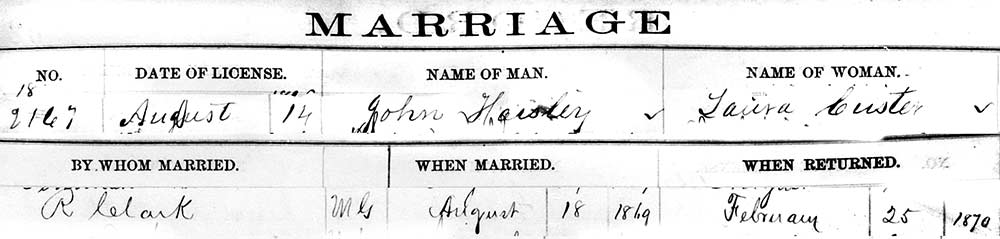 MARRIAGE
NO. DATE OF LICENSE. NAME OF MAN. NAME OF WOMAN.
18
2167 August 14 John Haisley ✓ Laura Custer ✓
BY WHOM MARRIED. WHEN MARRIED. WHEN RETURNED.
R Clark MG August 18 1869 February 25 1870